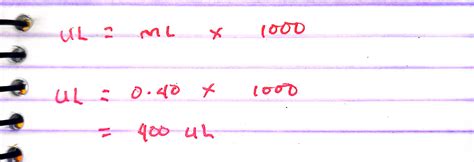 UL = mL x 1000
UL = 0.40 x 1000
= 400 UL